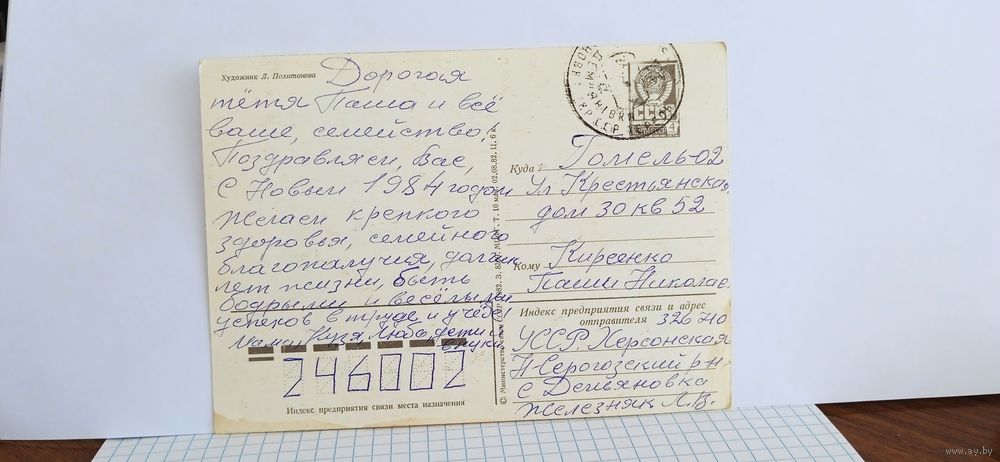 Художник Л. Похитонова
Дорогая
тётя Паша и всё
ваше, семейство!
Поздравляем, Вас,
С Новым 1984 годом
Желаем крепкого
здоровья, семейного
благополучия, долгих
лет жизни, быть
бодрыми и весёлыми
успехов в труде и учёбе!
Мама Кузя, Люба, дети и
внуки.
246002
Индекс предприятия связи места назначения
© Министерство связи СССР, 1982. З.
02.08.82. Ц. 6 к.
СССР
Куда Гомель-02
Ул Крестьянская
дом 30 кв 52
Кому Кирсенко
Паши Николае
Индекс предприятия связи и адрес
отправителя 326710
УССР. Херсонская
Н Серогозский р-н
с Демьяновка
Железняк Л.В.
www.ay.by